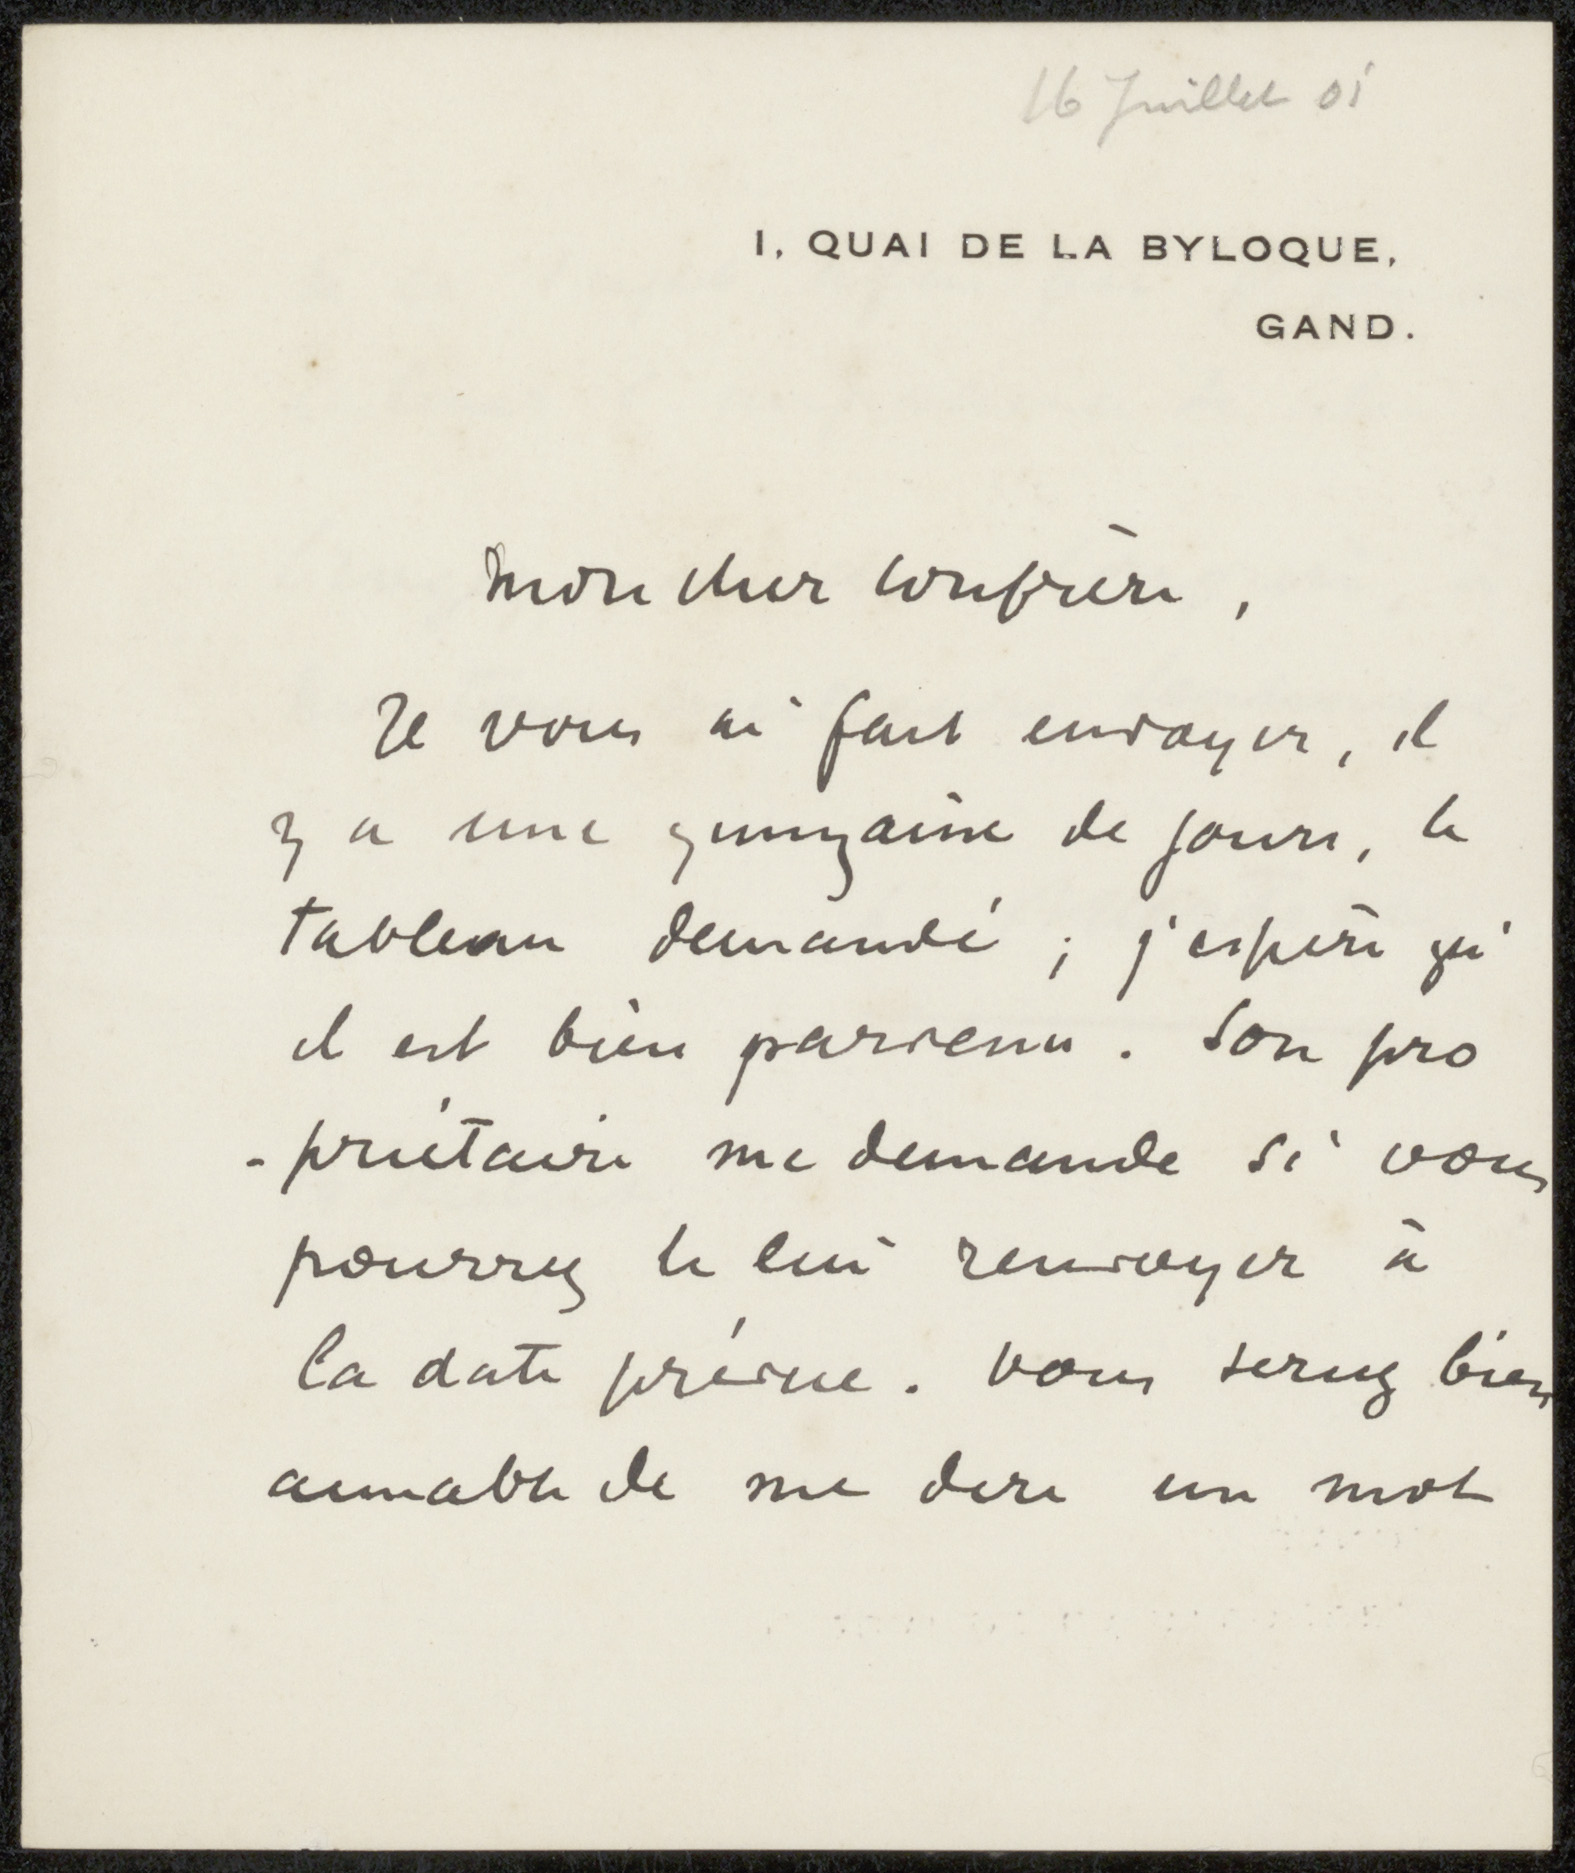 16 Juillet 01
1, QUAI DE LA BYLOQUE,
GAND.
Mon cher confrère,
Je vous ai fait envoyer, il
y a une quinzaine de jours, le
tableau demandé ; j'espère qu'
il est bien parvenu. Son pro
-priétaire me demande si vous
pourrez le lui renvoyer à
la date prévue. Vous serez bien
aimable de me dire un mot